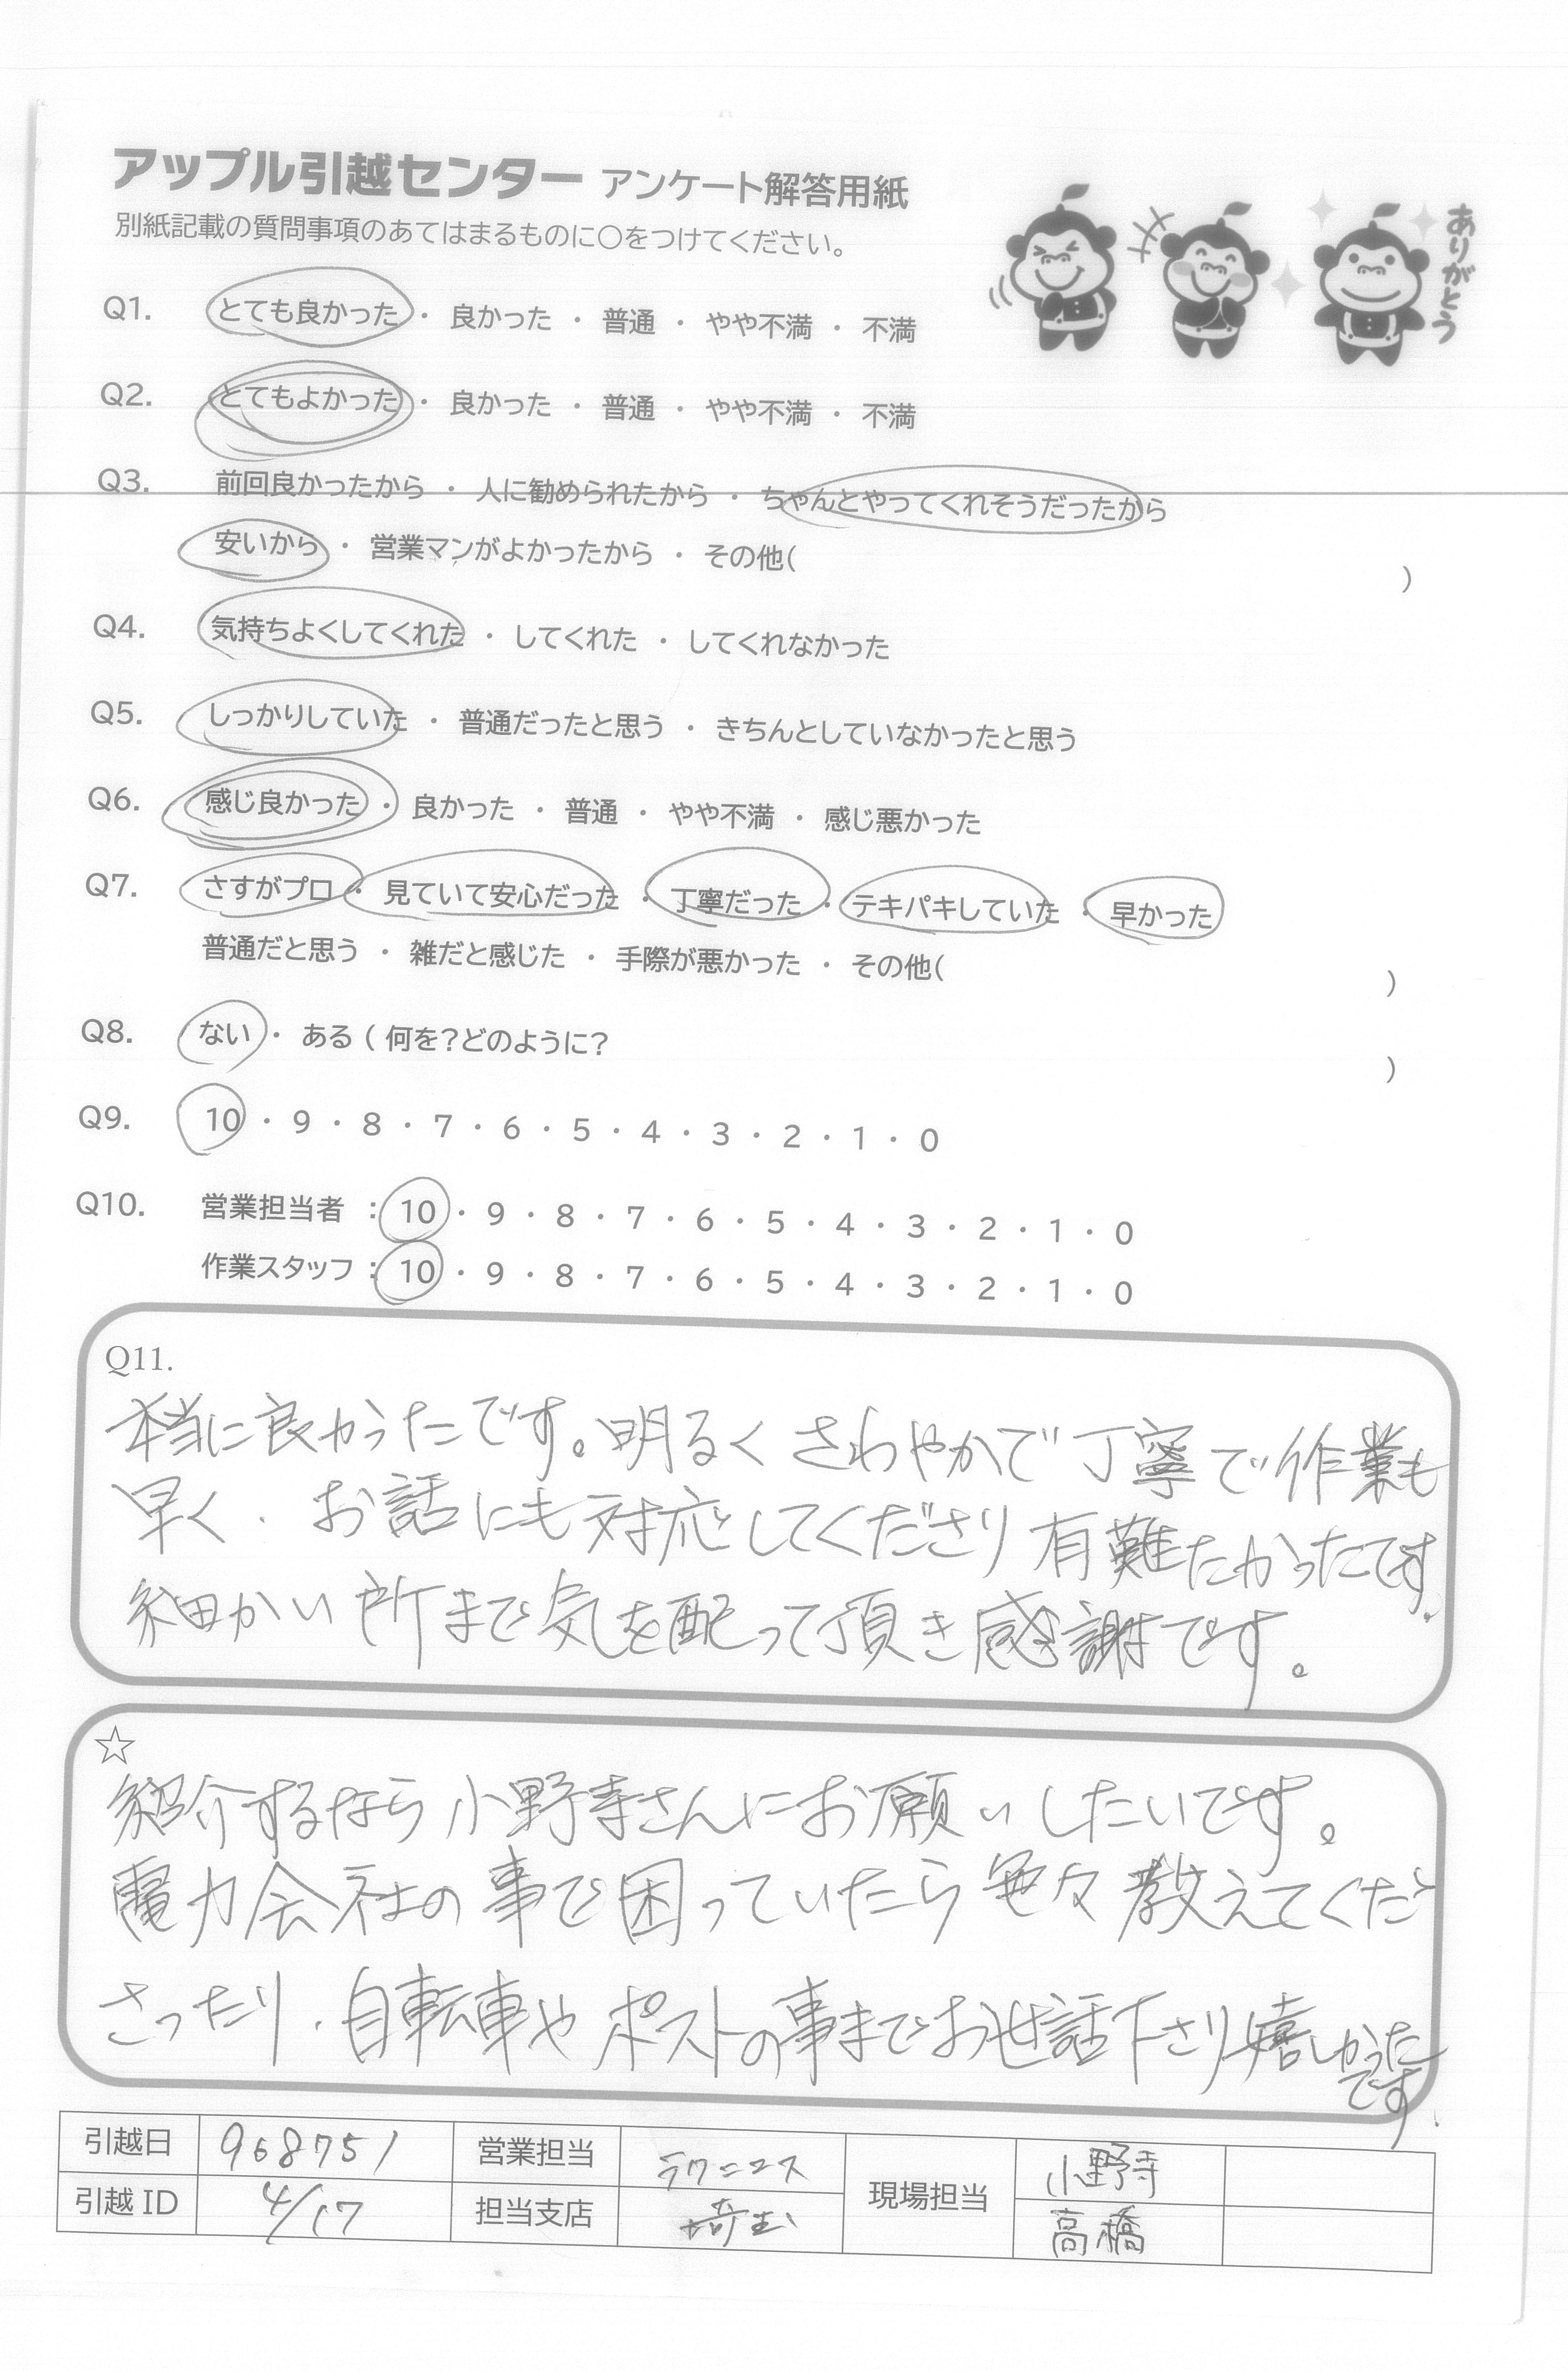 アップル引越センター アンケート解答用紙
別紙記載の質問事項のあてはまるものに○をつけてください。
ありがとう
Q1. とても良かった ・ 良かった ・ 普通 ・ やや不満 ・ 不満
Q2. とてもよかった ・ 良かった ・ 普通 ・ やや不満 ・ 不満
Q3. 前回良かったから ・ 人に勧められたから ・ ちゃんとやってくれそうだったから
安いから ・ 営業マンがよかったから ・ その他( )
Q4. 気持ちよくしてくれた ・ してくれた ・ してくれなかった
Q5. しっかりしていた ・ 普通だったと思う ・ きちんとしていなかったと思う
Q6. 感じ良かった ・ 良かった ・ 普通 ・ やや不満 ・ 感じ悪かった
Q7. さすがプロ ・ 見ていて安心だった ・ 丁寧だった ・ テキパキしていた ・ 早かった
普通だと思う ・ 雑だと感じた ・ 手際が悪かった ・ その他( )
Q8. ない ・ ある ( 何を?どのように? )
Q9. 10 ・ 9 ・ 8 ・ 7 ・ 6 ・ 5 ・ 4 ・ 3 ・ 2 ・ 1 ・ 0
Q10. 営業担当者 : 10 ・ 9 ・ 8 ・ 7 ・ 6 ・ 5 ・ 4 ・ 3 ・ 2 ・ 1 ・ 0
作業スタッフ : 10 ・ 9 ・ 8 ・ 7 ・ 6 ・ 5 ・ 4 ・ 3 ・ 2 ・ 1 ・ 0
Q11.
本当に良かったです。明るくさわやかで丁寧で作業も
早く、お話にも対応してくださり有難たかったです。
細かい所まで気を配って頂き感謝です。
☆
紹介するなら小野寺さんにお願いしたいです。
電力会社の事で困っていたら色々教えてくだ
さったり、自転車やポストの事までお世話下さり嬉しかった
です。
引越日 968751 営業担当 ラクニコス 現場担当 小野寺
引越ID 4/17 担当支店 埼玉 高橋